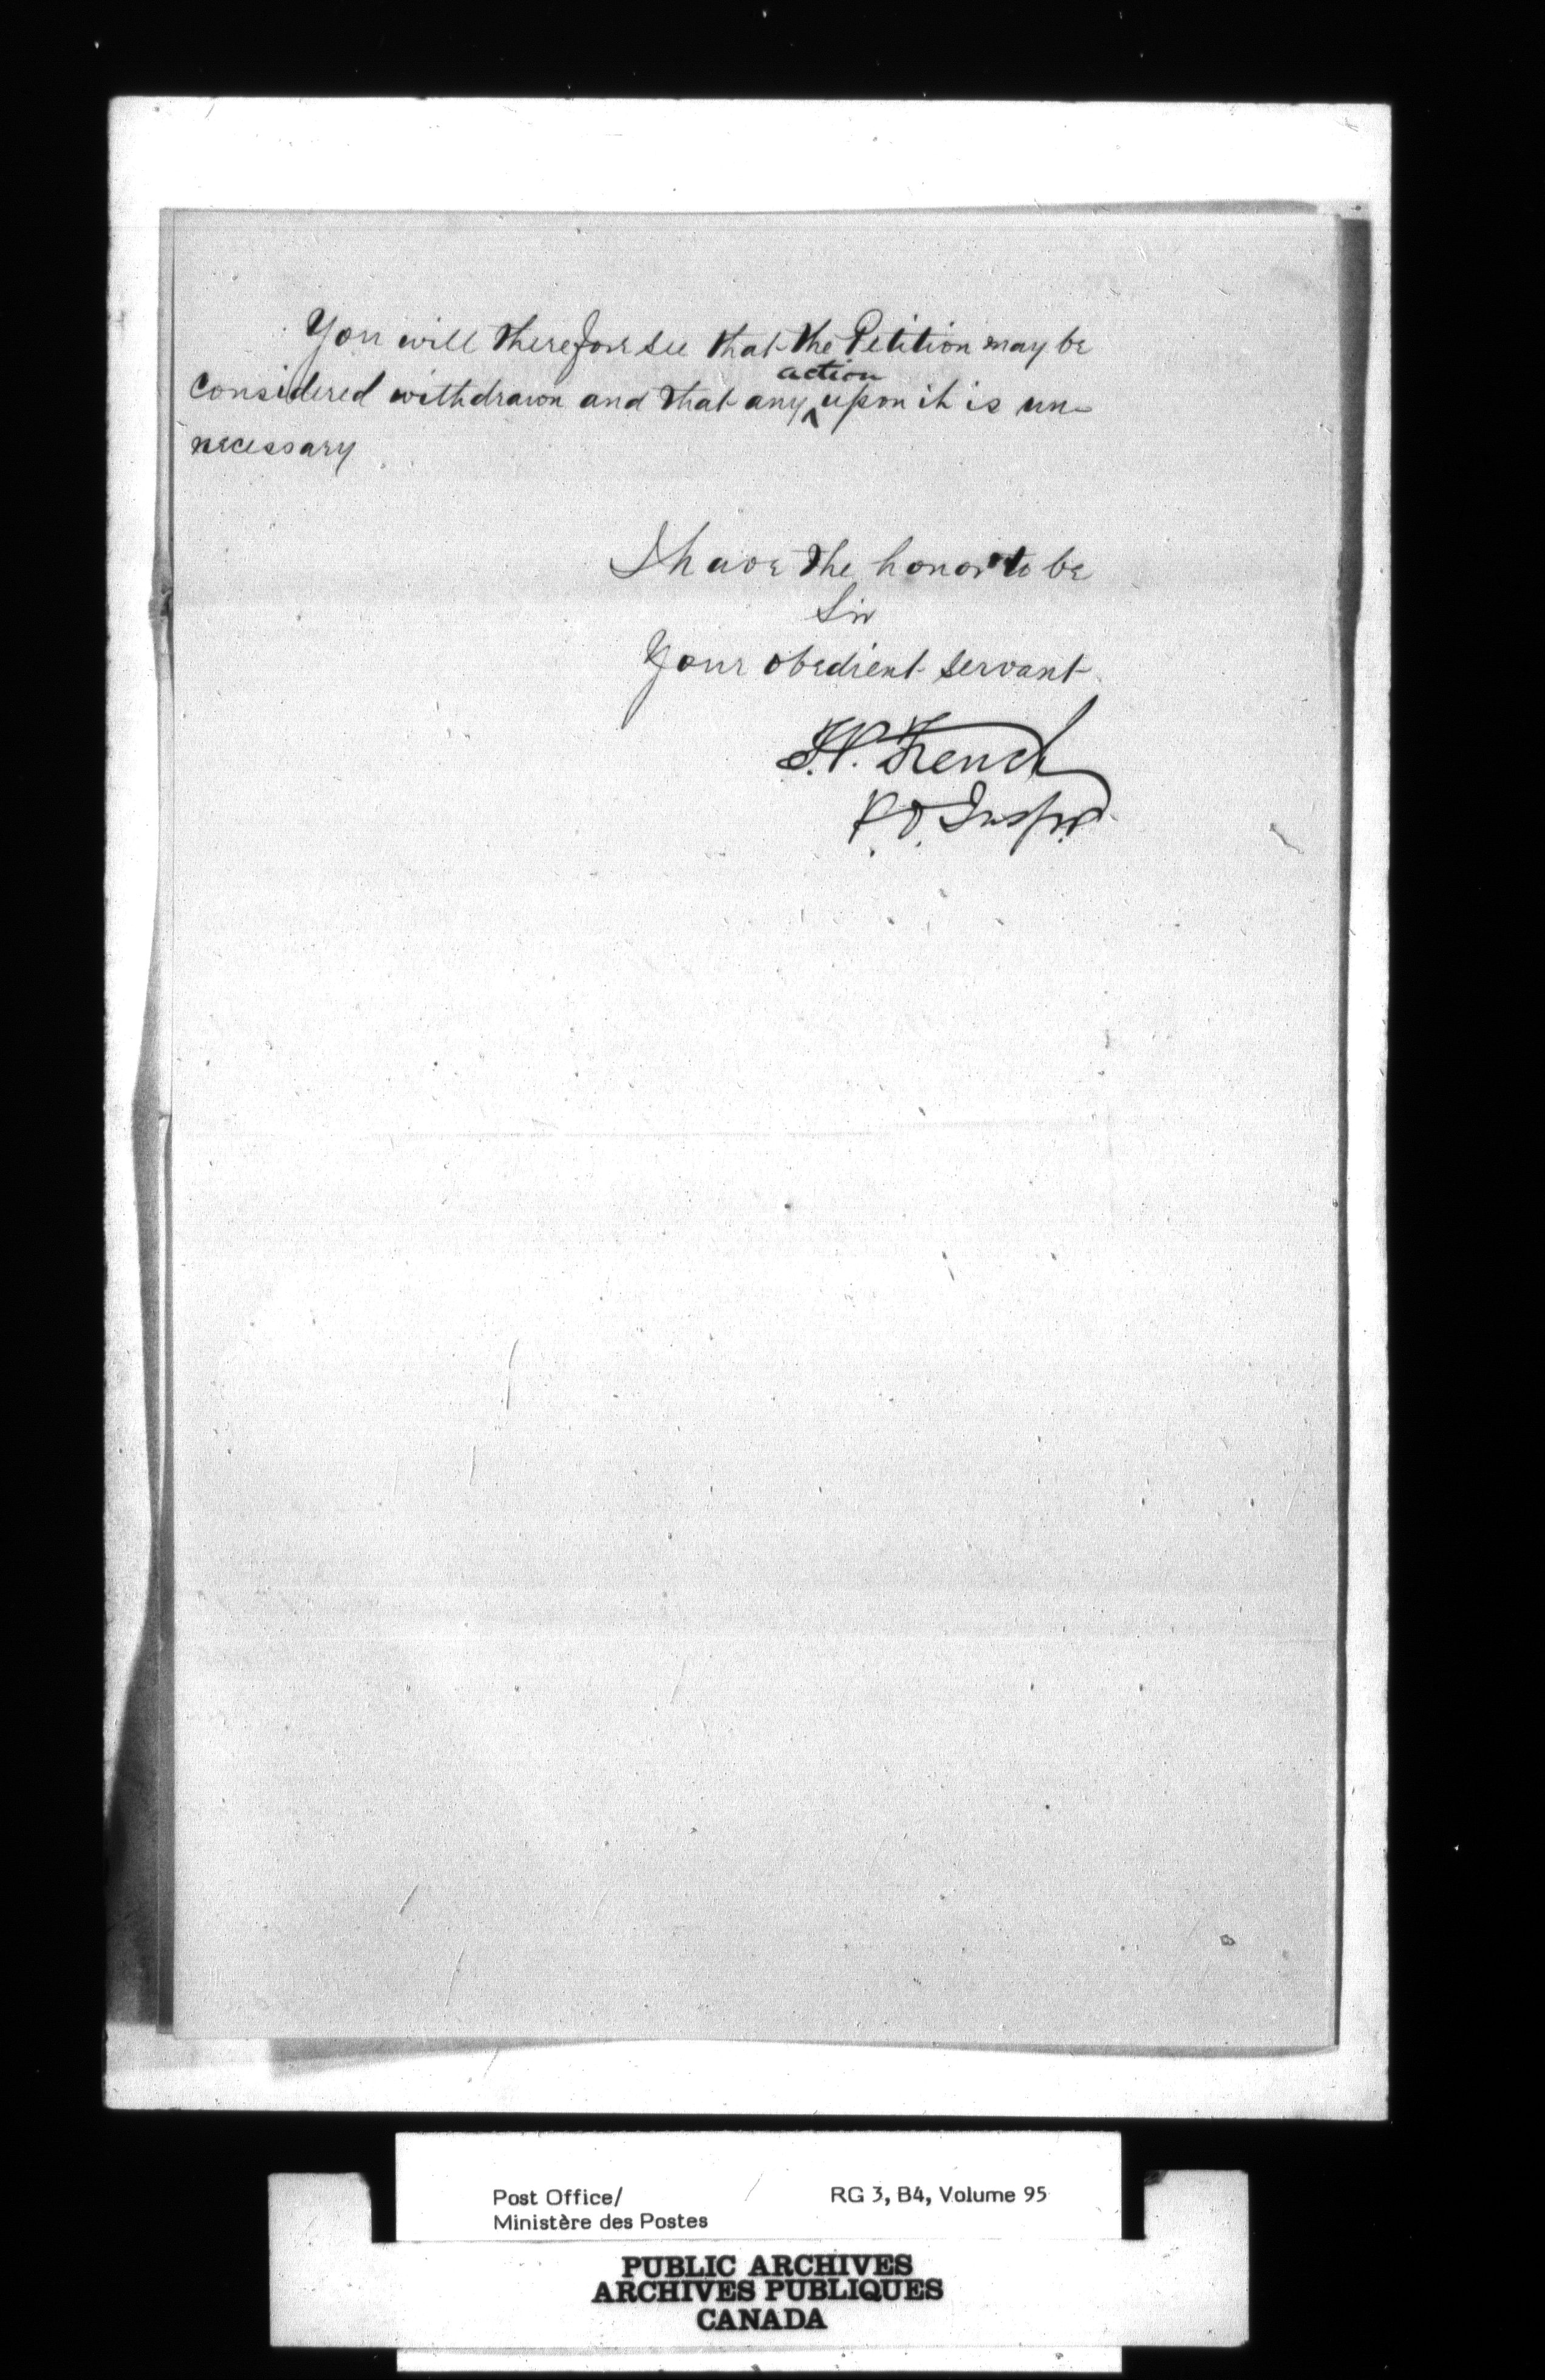 You will therefore see that the Petition may be
action
considered withdrawn and that any ^ upon it is un-
necessary
I have the honor to be
Sir
Your obedient servant
T.P. French
P.O. Inspr.
Post Office/
Ministère des Postes
RG 3, B4, Volume 95
PUBLIC ARCHIVES
ARCHIVES PUBLIQUES
CANADA